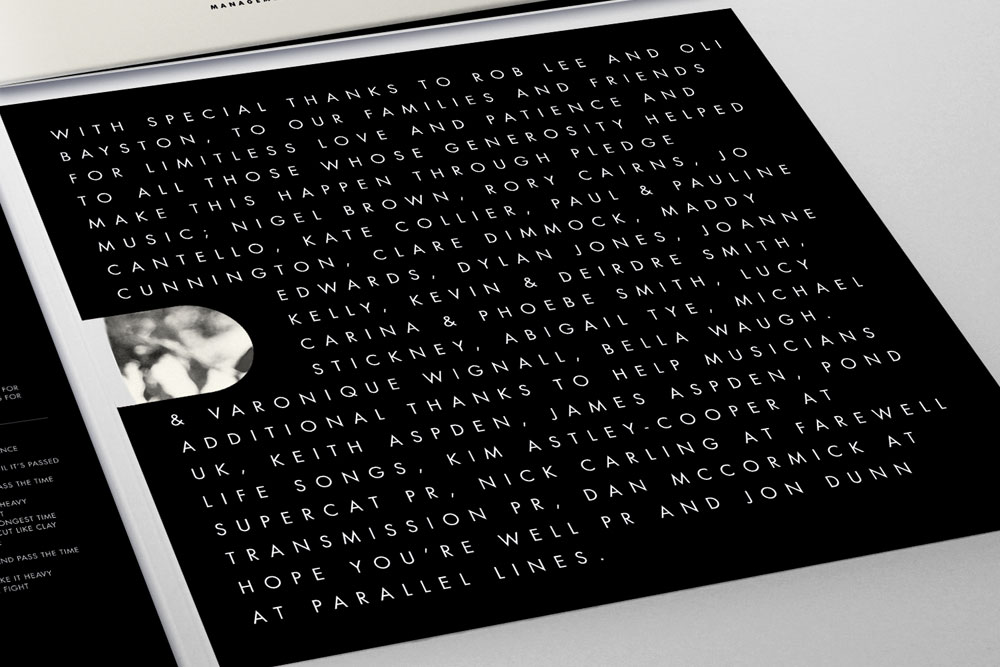 WITH SPECIAL THANKS TO ROB LEE AND OLI
BAYSTON, TO OUR FAMILIES AND FRIENDS
FOR LIMITLESS LOVE AND PATIENCE AND
TO ALL THOSE WHOSE GENEROSITY HELPED
MAKE THIS HAPPEN THROUGH PLEDGE
MUSIC; NIGEL BROWN, RORY CAIRNS, JO
CANTELLO, KATE COLLIER, PAUL & PAULINE
CUNNINGTON, CLARE DIMMOCK, MADDY
EDWARDS, DYLAN JONES, JOANNE
KELLY, KEVIN & DEIRDRE SMITH,
CARINA & PHOEBE SMITH, LUCY
STICKNEY, ABIGAIL TYE, MICHAEL
& VARONIQUE WIGNALL, BELLA WAUGH.
ADDITIONAL THANKS TO HELP MUSICIANS
UK, KEITH ASPDEN, JAMES ASPDEN, POND
LIFE SONGS, KIM ASTLEY-COOPER AT
SUPERCAT PR, NICK CARLING AT FAREWELL
TRANSMISSION PR, DAN MCCORMICK AT
HOPE YOU'RE WELL PR AND JON DUNN
AT PARALLEL LINES.
FOR
FOR
IL IT'S PASSED
PASS THE TIME
HEAVY
ONGEST TIME
CUT LIKE CLAY
AND PASS THE TIME
KE IT HEAVY
FIGHT